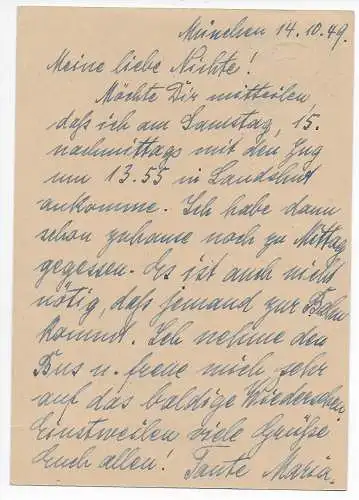 München 14.10.49.
Meine liebe Nichte!
Möchte Dir mitteilen
daß ich am Samstag, 15.
nachmittags mit den Zug
um 13.55 in Landshut
ankomme. Ich habe dann
schon zuhause noch zu Mittag
gegessen. Es ist auch nicht
nötig, daß jemand zur Bahn
kommt. Ich nehme den
Bus u. freue mich sehr
auf das baldige Wiedersehen.
Einstweilen viele Grüße
Euch allen! Tante Maria.